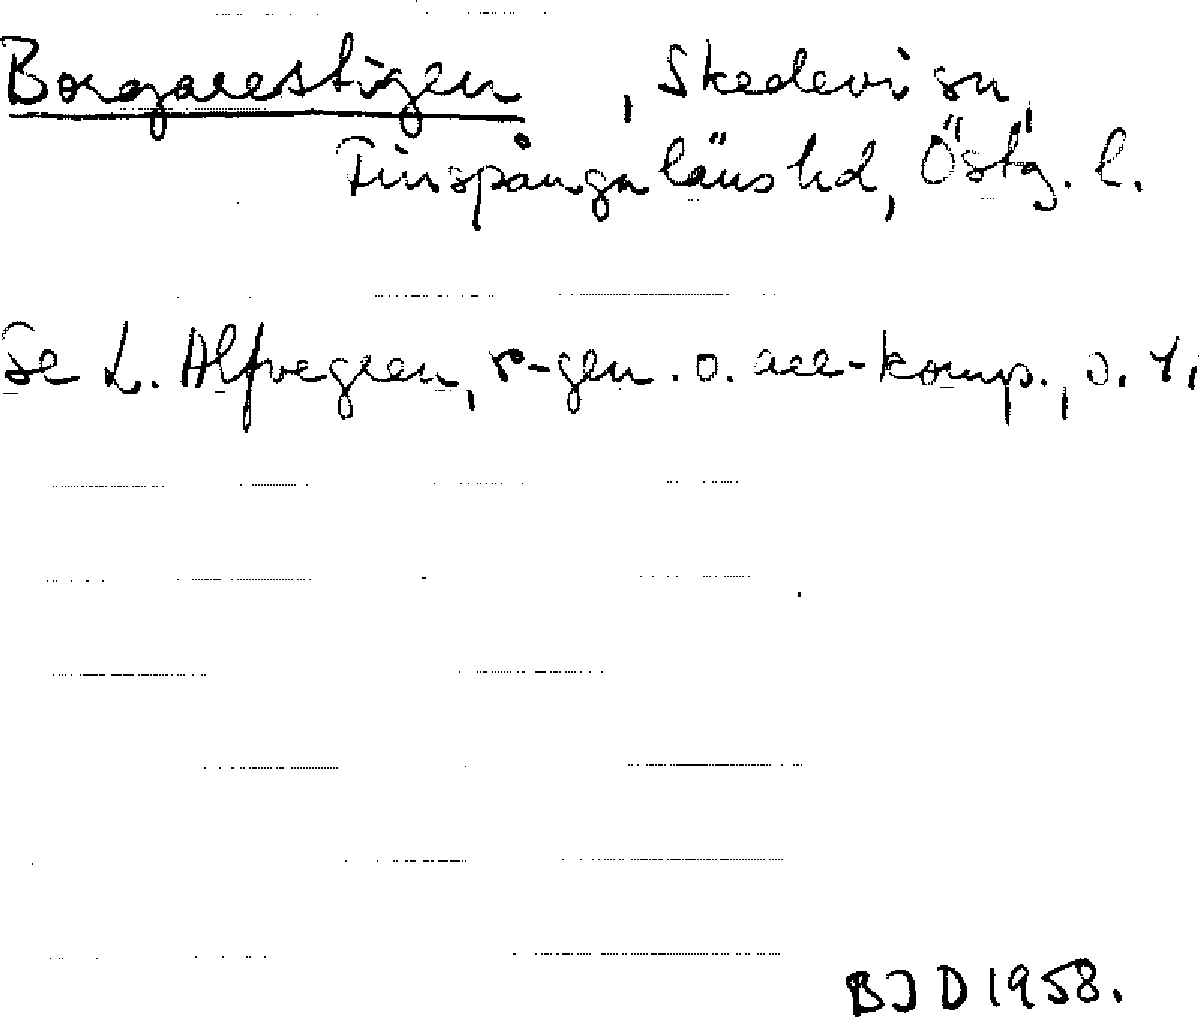 Borgarestigen, Skedevi sn,
Finspånga läns hd, Östg. l.
Se L. Alfvegren, r-gen. o. are-komp., s. 41
BJD 1958.